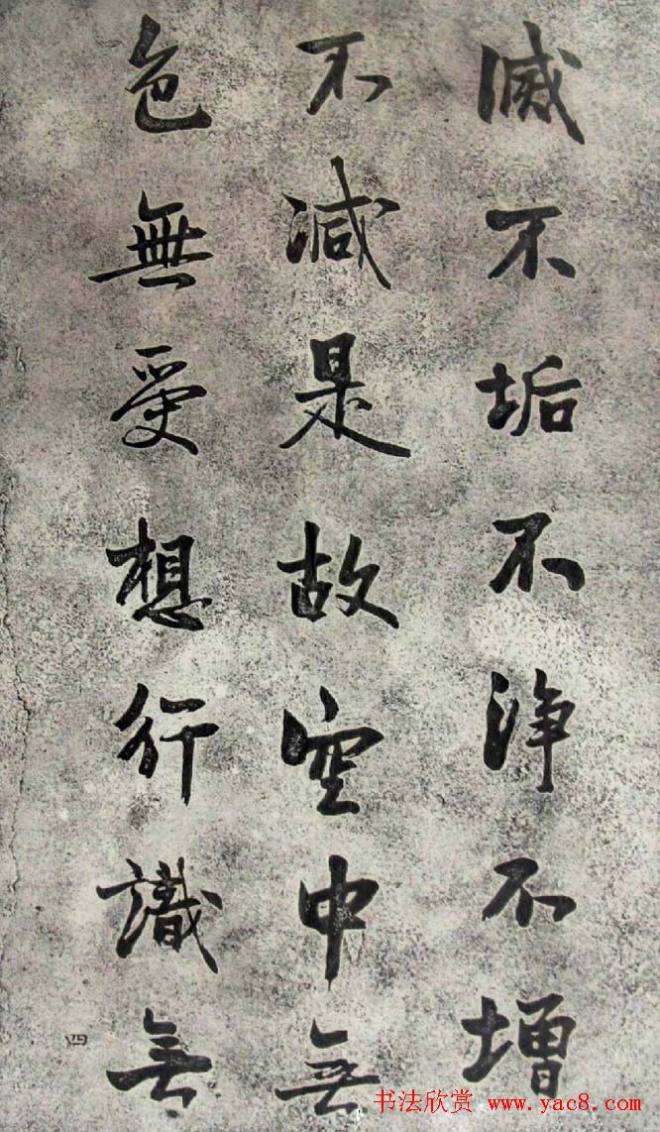 滅不垢不淨不增
不減是故空中無
色無受想行識無
四
书法欣赏 www.yac8.com